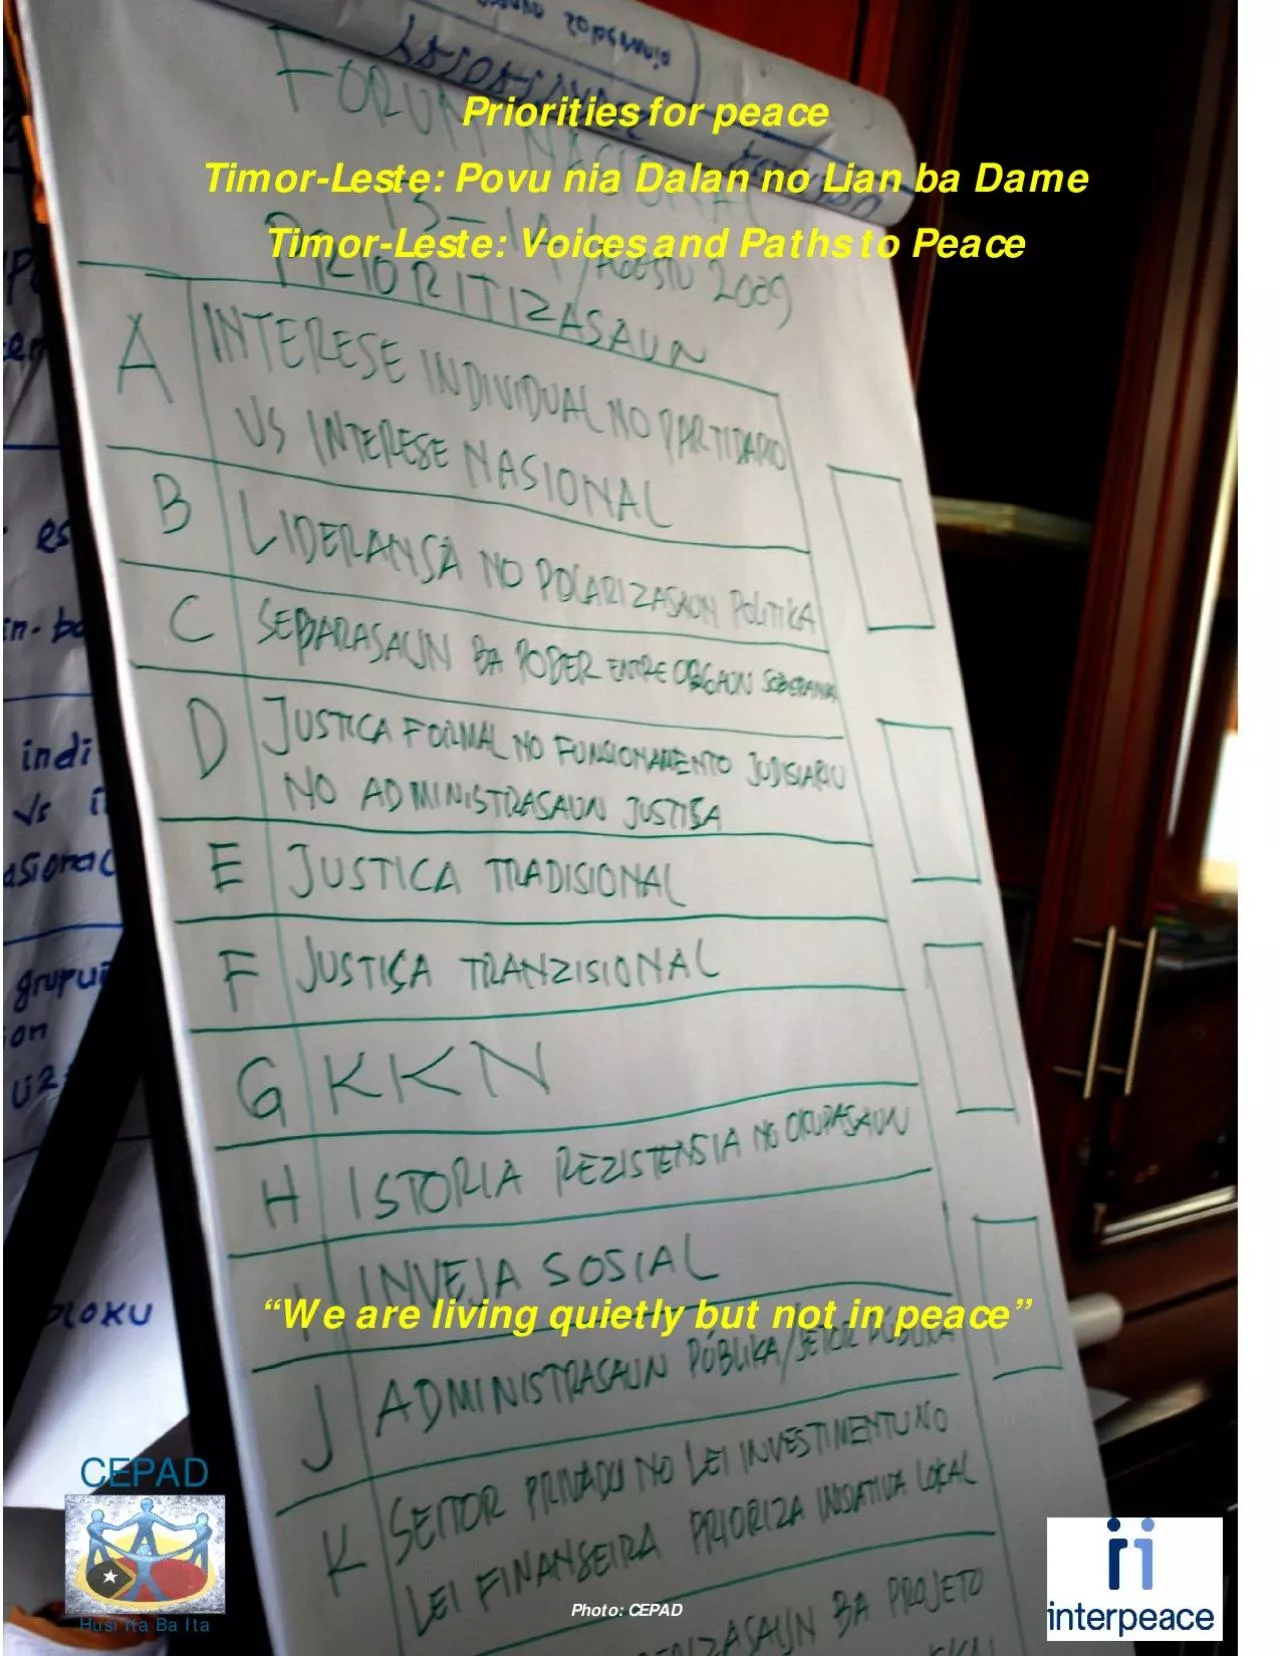 soberania
FORUM NASIONAL
Priorities for peace
Timor-Leste: Povu nia Dalan no Lian ba Dame
13-14/AGOSTU 2009
Timor-Leste: Voices and Paths to Peace
PRIORITIZASAUN
A INTERESE INDIVIDUAL NO PARTIDARIO
VS INTERESE NASIONAL
B LIDERANSA NO POLARIZASAUN POLITIKA
C SEPARASAUN BA PODER ENTRE ORGAUN SOBERANIA
D JUSTICA FORMAL NO FUNSIONAMENTO JUDISIARIU
NO ADMINISTRASAUN JUSTIÇA
E JUSTICA TRADISIONAL
F JUSTIÇA TRANZISIONAL
G KKN
H ISTORIA REZISTENSIA NO OKUPASAUN
I INVEJA SOSIAL
“We are living quietly but not in peace”
J ADMINISTRASAUN PÚBLIKA/SETOR PÚBLIKA
K SETOR PRIVADU NO LEI INVESTIMENTU NO
LEI FINANSEIRA PRIORIZA INISIATIVA LOKAL
BA PROJETO
es
indi
Vs
grupu
on
CEPAD
Husi Ita Ba Ita
Photo: CEPAD
interpeace